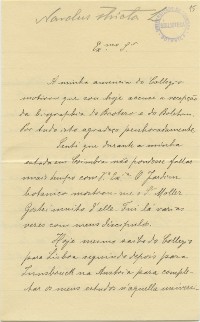 95
Exmo Sr
A minha ausencia do Collegio
motivou que eu hoje accuse a recepção
da biographia de Brotero e do Boletim
Por tudo isto agradeço penhoradamente.
Senti que durante a minha
estada em Coimbra não pudesse fallar
mais tempo com V. Exa. O Jardim
botanico mostrou-me o Sr Moller
Gostei muito d'elle. Fui lá varias
vezes com meus discipulos.
Hoje mesmo saibo do Collegio
para Lisboa seguindo depois para
Innsbruck na Austria para comple-
tar os meus estudos n'aquella univer-